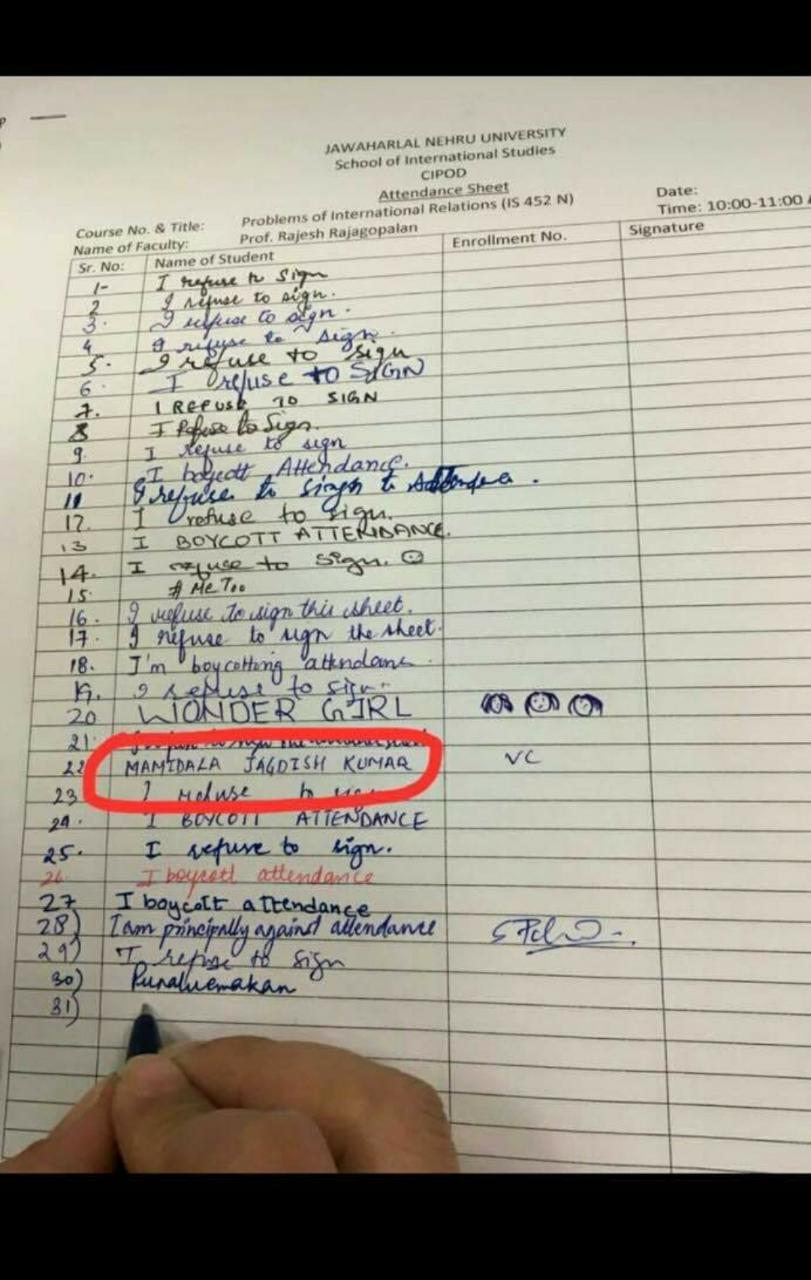 JAWAHARLAL NEHRU UNIVERSITY
School of International Studies
CIPOD
Attendance Sheet
Course No. & Title: Problems of International Relations (IS 452 N) Date:
Name of Faculty: Prof. Rajesh Rajagopalan Time: 10:00-11:00 A
Sr. No: Name of Student Enrollment No. Signature
1- I refuse to Sign
2 I refuse to sign.
3. I refuse to sign.
4 I refuse to sign.
5. I refuse to sign
6. I refuse to SIGN
7. I REFUSE TO SIGN
8 I Refuse to Sign.
9. I refuse to sign
10. I boycott Attendance.
11 I refuse to
12. I refuse to sign.
13 I BOYCOTT ATTENDANCE.
14. I refuse to sign.
15. # Me Too
16. I refuse to sign this sheet.
17. I refuse to sign the sheet.
18. I'm boycotting attendans
19. I refuse to sign.
20 WONDER GIRL
21.
22 MAMIDALA JAGDISH KUMAR VC
23 I refuse to
24. I BOYCOTT ATTENDANCE
25. I refuse to sign.
26. I boycott attendance
27 I boycott attendance
28) I am principally against attendance
29) I refuse to sign
30) Punaluemakan
31)